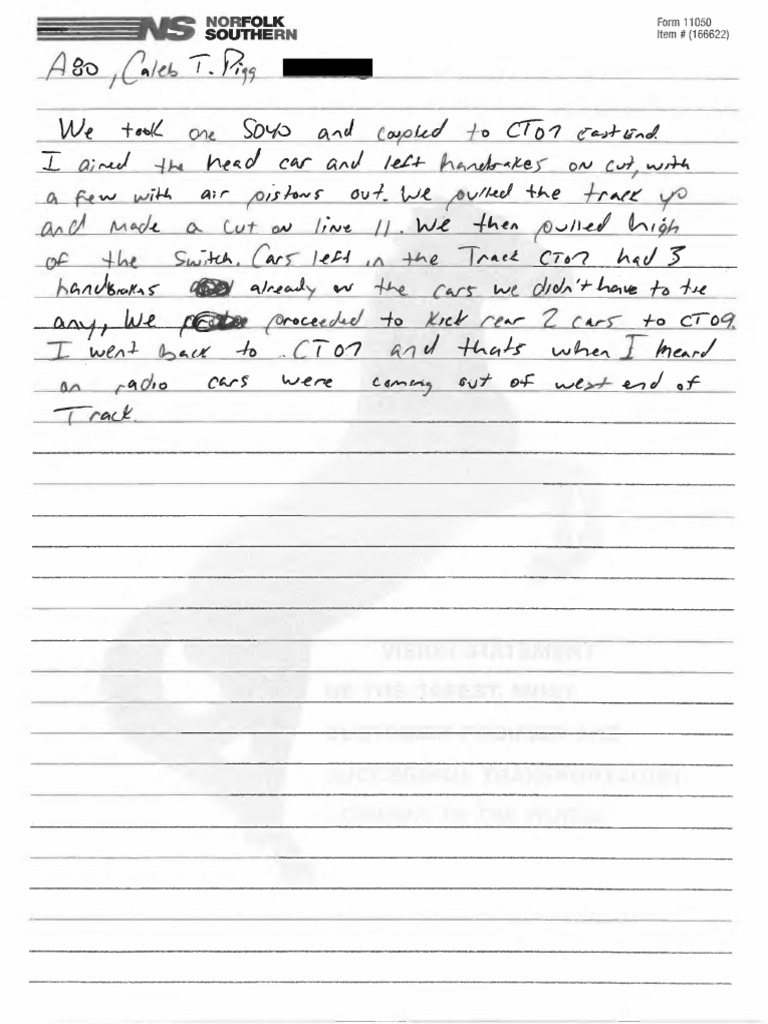 NS NORFOLK SOUTHERN
Form 11050
Item # (166622)
A80, Caleb T. Pigg
We took one SD40 and coupled to CT07 east end.
I aired the head car and left handbrakes on cut, with
a few with air pistons out. We pulled the track up
and made a cut on line 11. We then pulled high
of the switch. Cars left in the Track CT07 had 3
handbrakes already on the cars we didn't have to tie
any, We proceeded to kick rear 2 cars to CT09.
I went back to CT07 and thats when I heard
on radio cars were coming out of west end of
Track.
VISION STATEMENT
BE THE SAFEST, MOST
CUSTOMER FOCUSED AND
SUCCESSFUL TRANSPORTATION
COMPANY IN THE WORLD